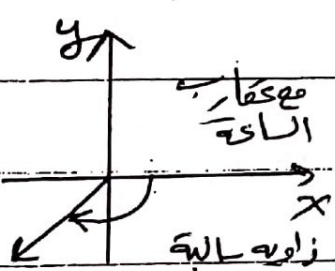 y
مع عقارب
الساعة
x
زاوية سالبة